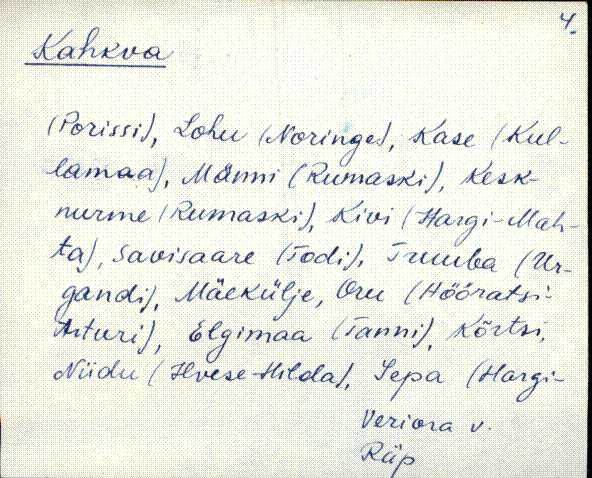 4.
Kahkva
(Porissi), Lohu (Noringe), Kase (Kul-
lamaa), Männi (Rumaski), Kesk-
nurme (Rumaski), Kivi (Hargi-Mah-
ta), Savisaare (Todi), Truuba (Ur-
gandi), Mäekülje, Oru (Hööratsi-
Arturi), Elgimaa (Tanni), Kõrtsi,
Niidu (Hvese-Hilda), Sepa (Hargi-
Veriora v.
Räp